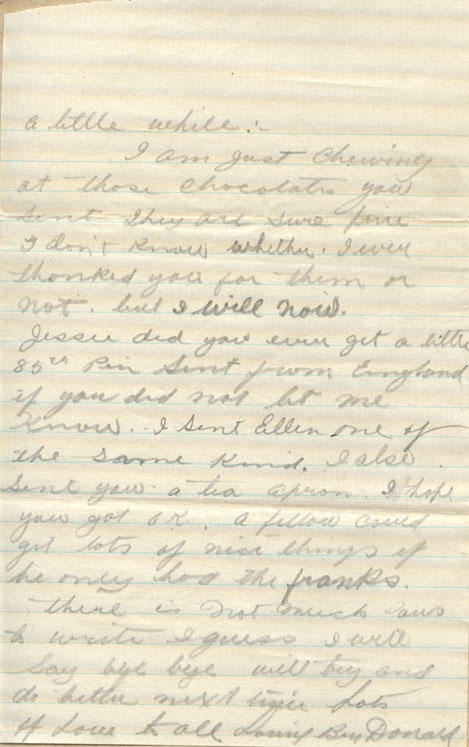 a little while:-
I am just chewing
at those chocolates you
sent they are sure fine
I don't know whether I ever
thanked you for them or
not. but I will now.
Jessie did you ever get a little
85th Pin sent from England
if you did not let me
know. I sent Ellen one of
the same kind. I also
sent you a tea apron I hope
you got OK. a fellow could
get lots of nice things if
he only had the franks.
there is not much news
to write I guess I will
say bye bye will try and
do better next time Lots
of Love to all Loving Bro Donald